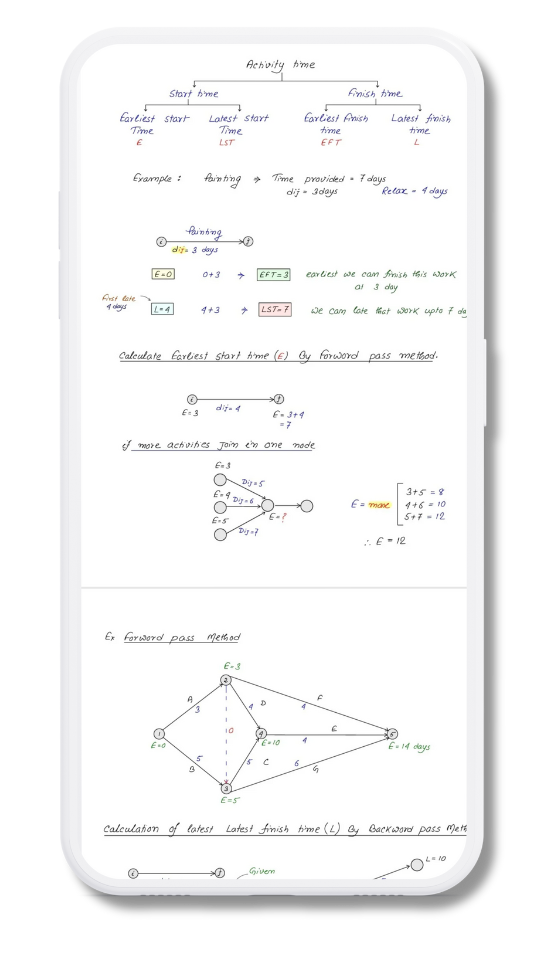 Activity time
Start time
Finish time
Earliest start Time
E
Latest start Time
LST
Earliest finish time
EFT
Latest finish time
L
Example : Painting ⇒ Time provided = 7 days
dij = 3 days Relax = 4 days
Painting
i j
dij = 3 days
E=0 0+3 ⇒ EFT=3 earliest we can finish this work
at 3 day
First late
4 days
L=4 4+3 ⇒ LST=7 we can late that work upto 7 da
Calculate Earliest start time (E) By forword pass method.
i j
E=3 dij=4 E=3+4
=7
if more activities join in one node
E=3
Dij=5
E=4 Dij=6
E=5 E=?
Dij=7
E = more
3+5 = 8
4+6 = 10
5+7 = 12
∴ E = 12
Ex Forword pass Method
E=3
2
A
3
4 D
4
F
1
E=0
0
4
E=10
E
4
5
E=14 days
5
B
5 C
6
G
3
E=5
Calculation of latest Latest finish time (L) By Backword pass Meth
i j
Given
L=10